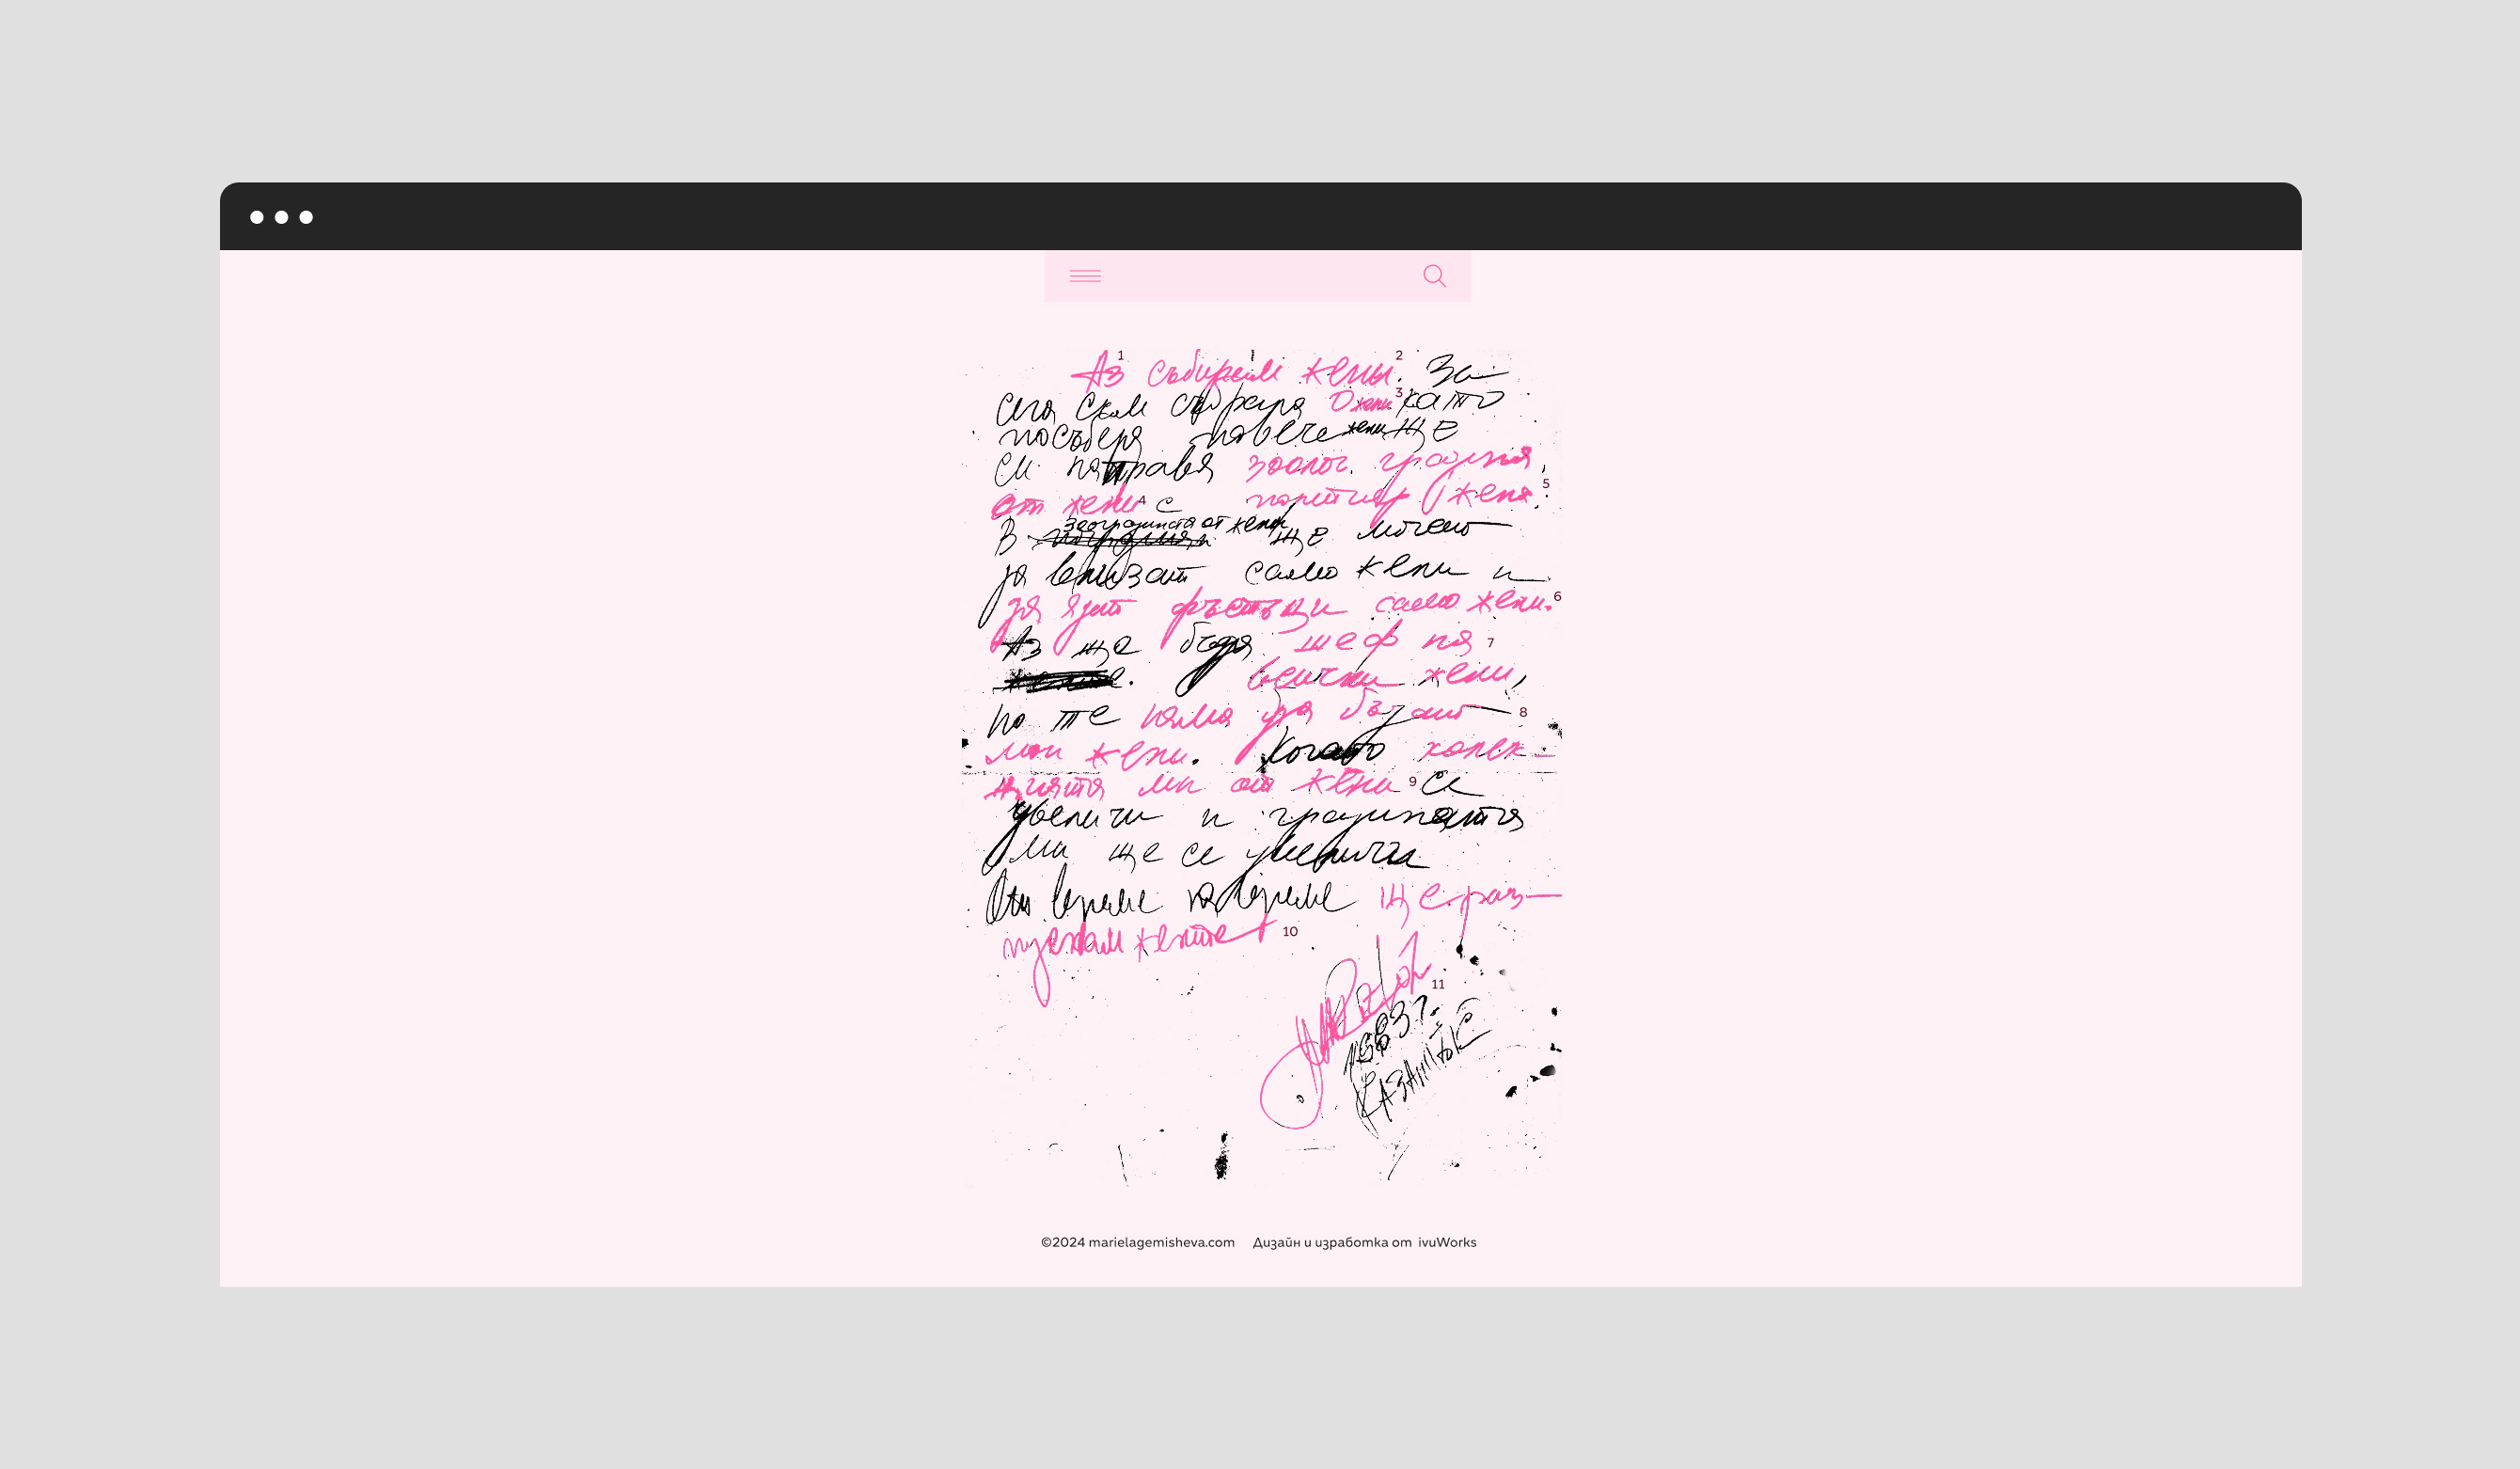 Аз¹ събирам жени.² За
сега съм събрала 0 жени³ като
посъбера повече жени ще
си направя зоолог. градина,
от жени⁴ с портиер жена.⁵
В зооградината от жени ще могат
да влизат само жени и
да ядат фъстъци само жени.⁶
Аз ще бъда шеф на⁷
всички жени,
но те няма да бъдат⁸
мои жени. Когато колек-
цията ми от жени⁹ се
увеличи и градината
ми ще се увеличи
От време на време ще раз-
пускам жените¹⁰
11
КАЗАНЛЪК
©2024 marielagemisheva.com Дизайн и изработка от ivuWorks